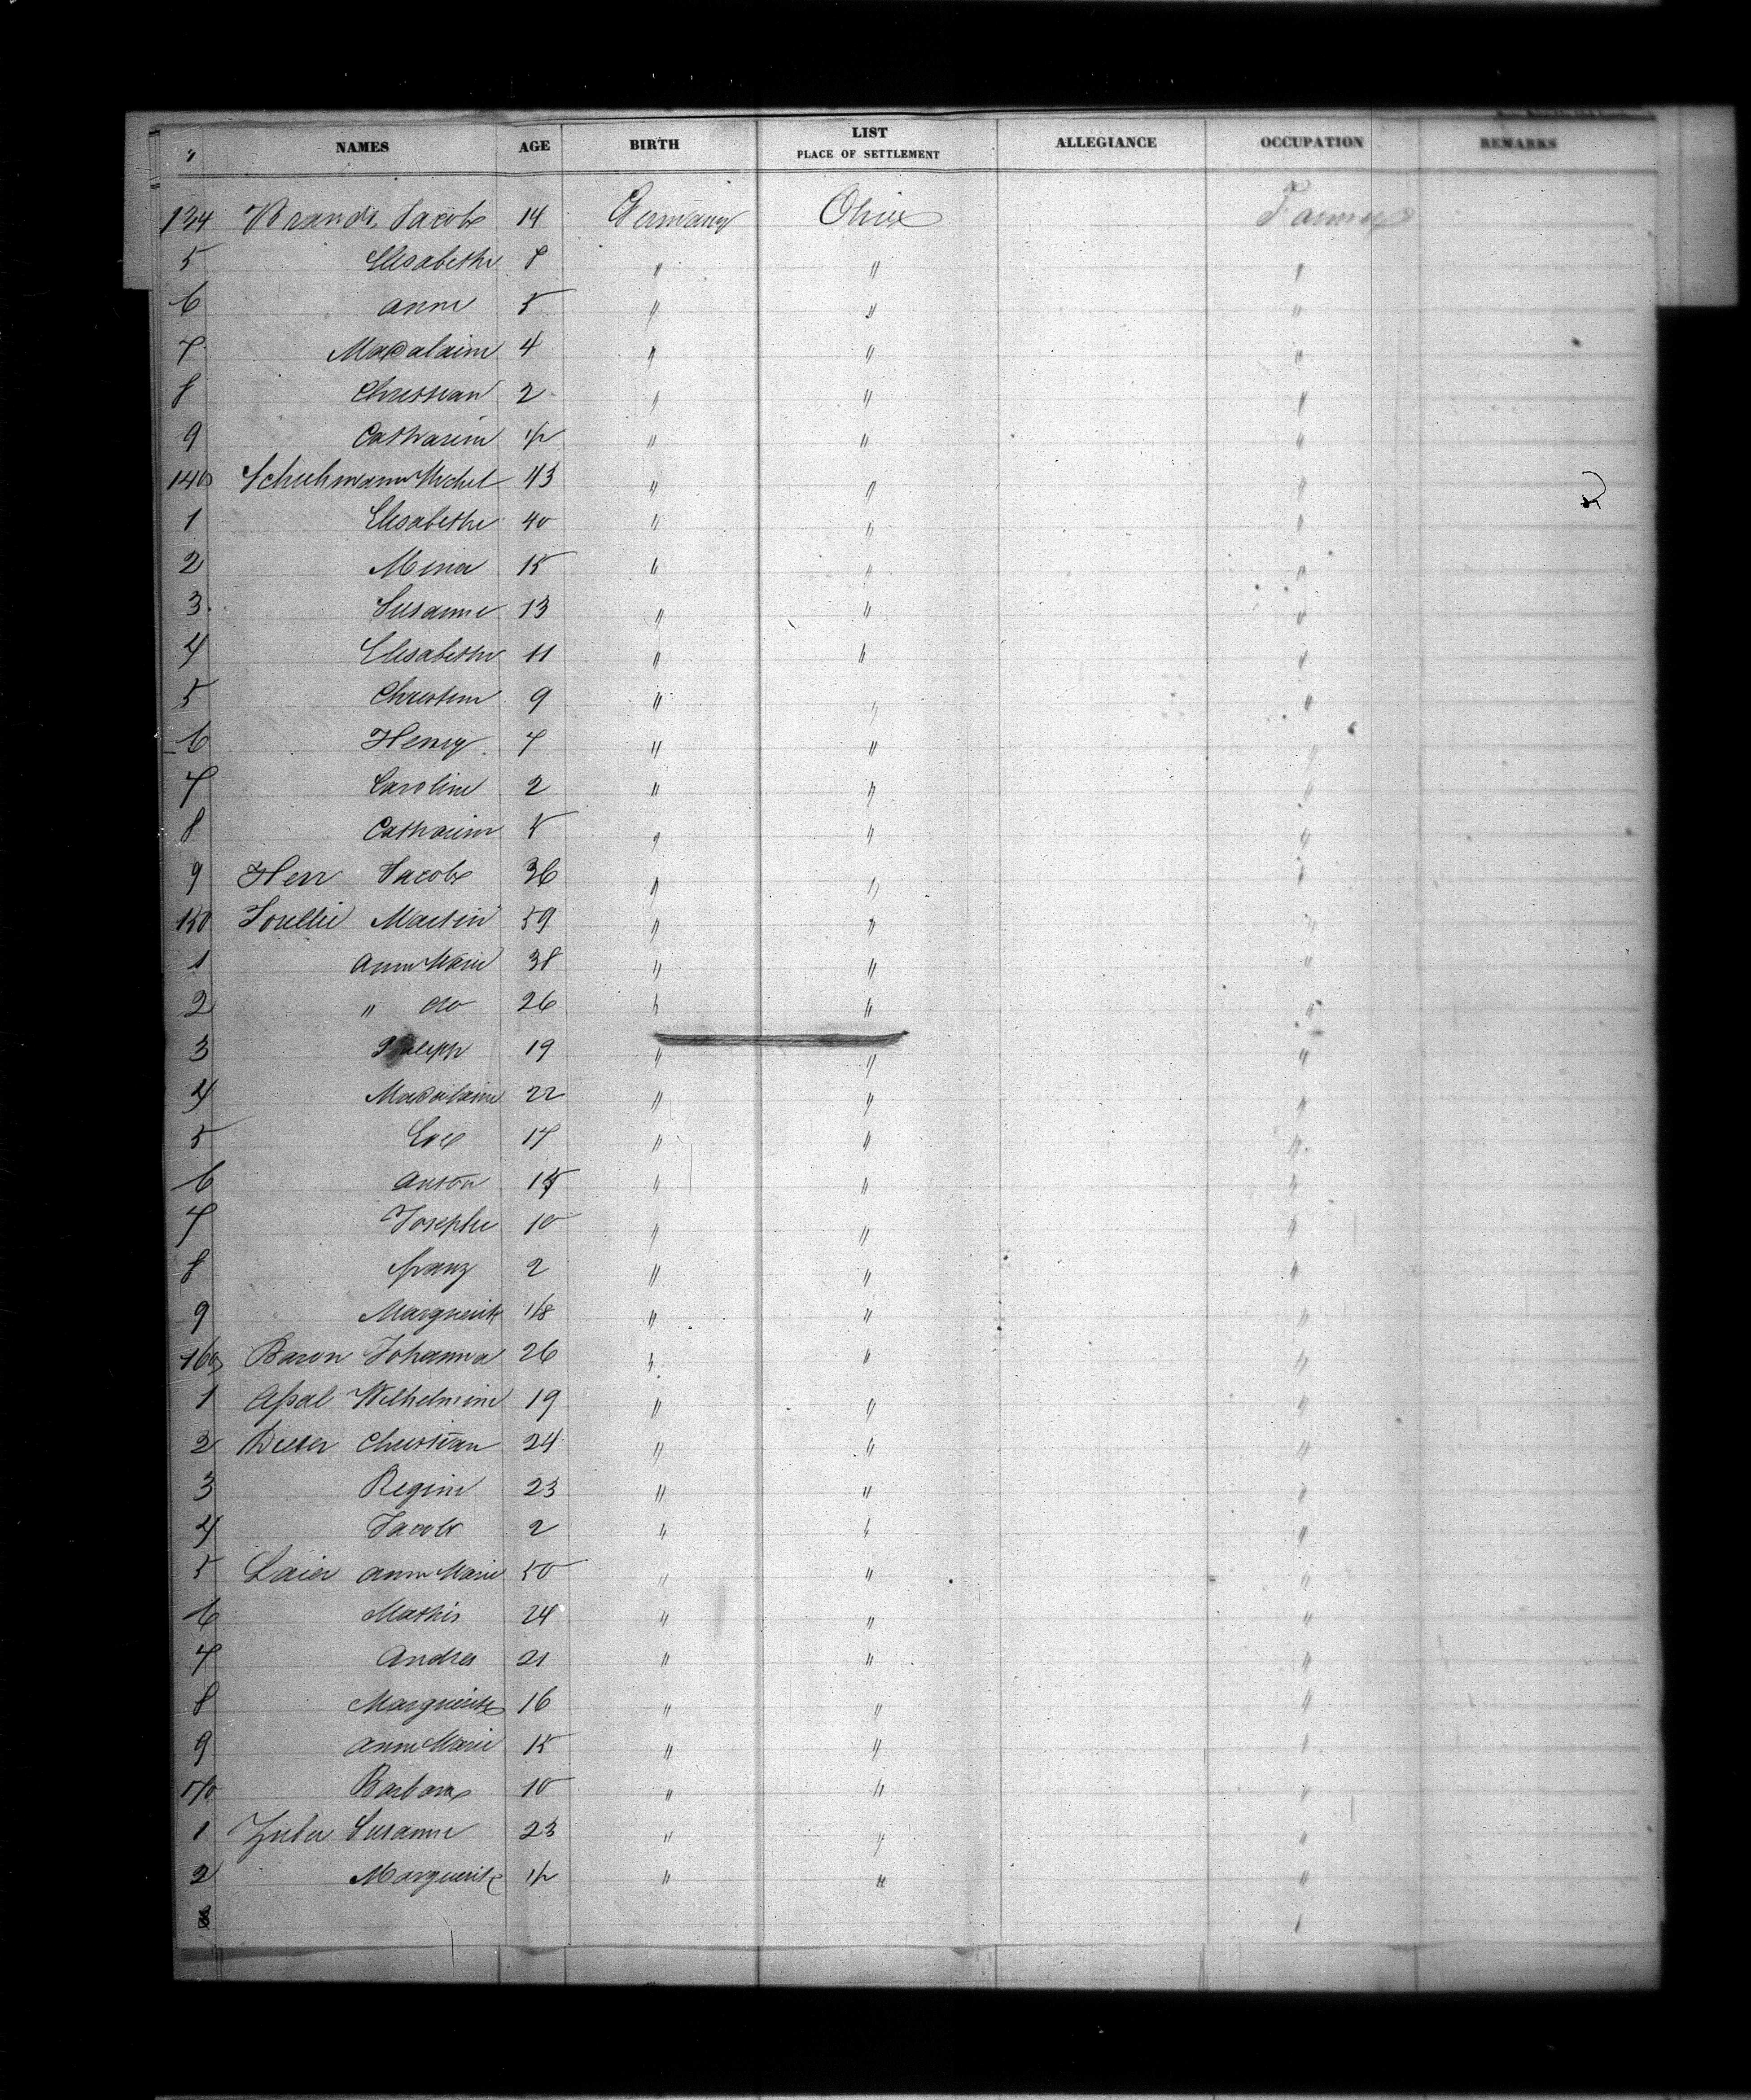 " NAMES AGE BIRTH LIST PLACE OF SETTLEMENT ALLEGIANCE OCCUPATION REMARKS
134 Brandt, Jacob 14 Germany Ohio Farmer
5 Elisabethe 8 " " "
6 Anne 5 " " "
7 Madalaine 4 " " "
8 Christian 2 " " "
9 Catharine 1/2 " " "
140 Schuhmann Michel 43 " " "
1 Elisabethe 40 " " "
2 Mina 15 " " "
3 Susanne 13 " " "
4 Elisabethe 11 " " "
5 Christine 9 " " "
6 Henry 7 " " "
7 Caroline 2 " " "
8 Catharine 5 " " "
9 Herr Jacob 36 " " "
150 Martin 59 " " "
1 Anne Marie 38 " " "
2 " do 26 " " "
3 Joseph 19 " " "
4 Madalaine 22 " " "
5 Eve 17 " " "
6 Anton 15 " " "
7 Josephe 10 " " "
8 Franz 2 " " "
9 Marguerite 1/8 " " "
160 Baron Johanna 26 " " "
1 Wilhelmine 19 " " "
2 Dieter Christian 24 " " "
3 Regine 23 " " "
4 Jacob 2 " " "
5 Laier Anne Marie 50 " " "
6 Mathis 24 " " "
7 Andres 21 " " "
8 Marguerite 16 " " "
9 Anne Marie 15 " " "
170 Barbara 10 " " "
1 Zuber Susanne 23 " " "
2 Marguerite 1/2 " " "
"